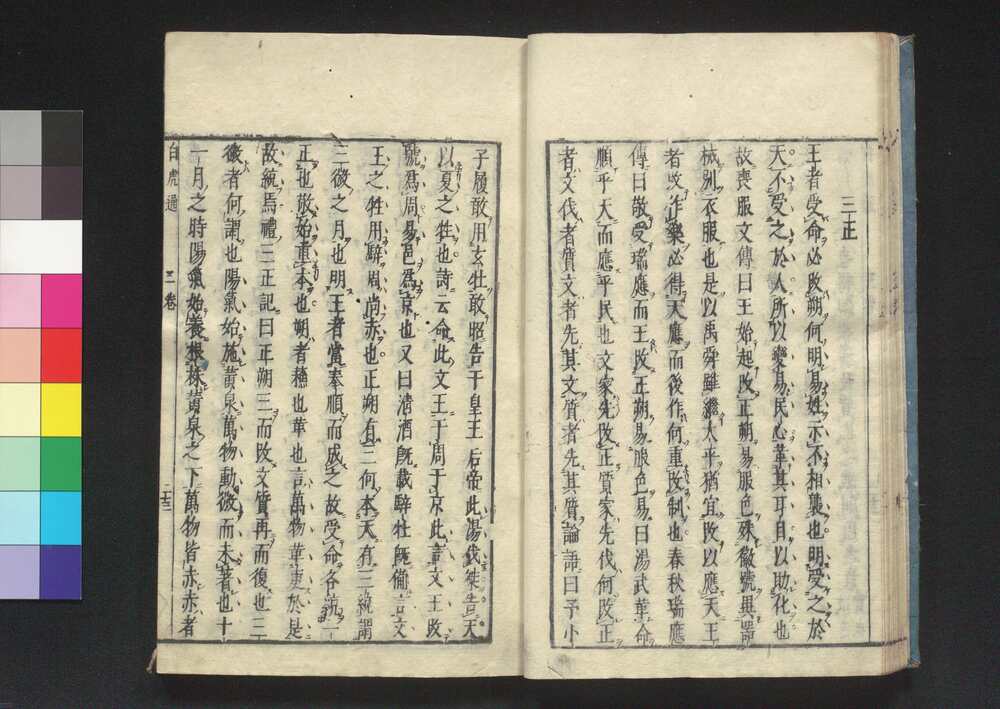 三正
王者受命必改朔何明易姓示不相襲也明受之於
天不受之於人所以變易民心革其耳目以助化也
故喪服大傳曰王始起改正朔易服色殊徽號異器
械別衣服也是以禹舜雖繼太平猶宜改以應天王
者改作樂必得天應而後作何重改制也春秋瑞應
傳曰敬受瑞應而王改正朔易服色易曰湯武革命
順乎天而應乎民也文家先改正質家先伐何改正
者文伐者質文者先其文質者先其質論語曰予小
子履敢用玄牡敢昭告于皇王后帝此湯伐桀告天
以夏之牲也詩云命此文王于周于京此言文王改
號為周易邑為京也又曰清酒既載騂牡既備言文
王之牲用騂周尚赤也正朔有三何本天有三統謂
三微之月也明王者當奉順而成之故受命各統一
正也敬始重本也朔者蘇也革也言萬物革更於是
故統焉禮三正記曰正朔三而改文質再而復也三
微者何謂也陽氣始施黃泉萬物動微而未著也十
一月之時陽氣始養根株黃泉之下萬物皆赤赤者
白虎通 三卷 二十三